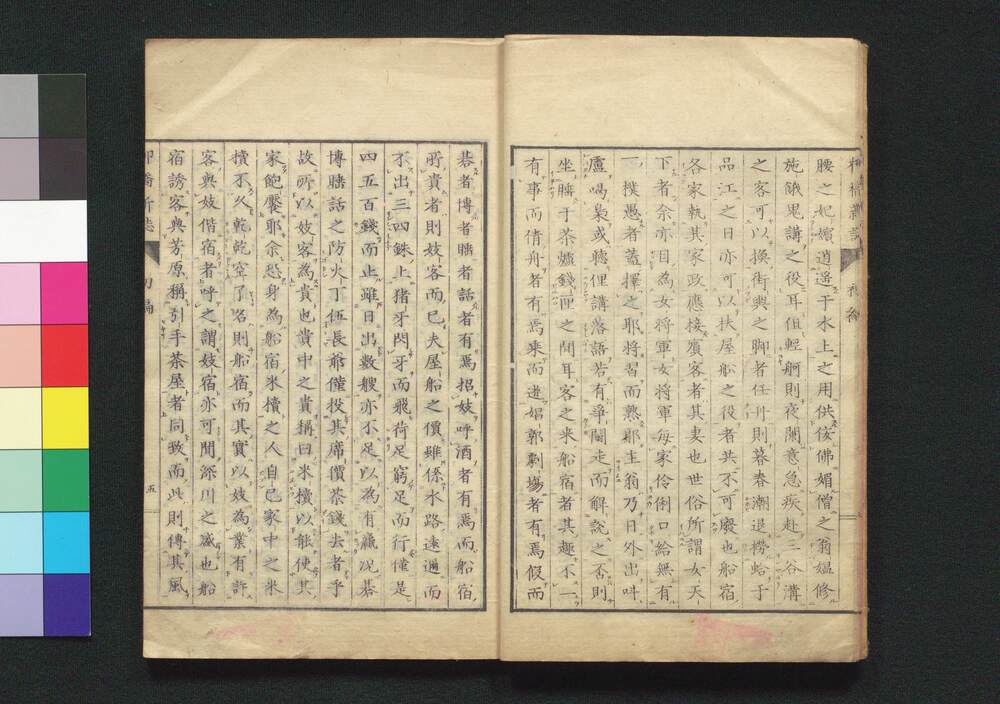 腰之妃嬪逍遙于水上之用供侫佛媚僧之翁媼修
施餓鬼講之役耳但輕舸則夜闌意急疾赴三谷溝
之客可以換街輿之脚者任舟則暮春潮退撈蛤于
品江之日亦可以扶屋舩之役者共不可廢也船宿
各家執其家政應接賓客者其妻也世俗所謂女天
下者余亦目為女將軍女將軍每家伶俐口給無有
一撲愚者蓋擇之耶將習而熟耶主翁乃日外出呌
盧喝梟或聽俚講落語若有爭鬪走而解說之否則
坐睡于茶爐錢匣之間耳客之来船宿者其趣不一
有事而倩舟者有焉来而遊娼郭劇場者有焉假而
碁者博者睡者話者有焉招妓呼酒者有焉而船宿
所貴者則妓客而已夫屋船之價雖係水路遠邇而
不出三四銖上猪牙閃牙而飛荷足窮足而行僅是
四五百錢而止雖日出數艘亦不足以為有贏况碁
博睡話之防火丁伍長爺僅投其席價茶錢去者乎
故所以妓客為貴也貴中之貴稱曰米櫝以能使其
家飽饜耶余恐身為船宿米櫝之人自己家中之米
櫝不久乾乾空了名則船宿而其實以妓為業有許
客與妓偕宿者呼之謂妓宿亦可聞深川之盛也船
宿誘客與芳原稱引手茶屋者同致而此則傳其風
初編
五